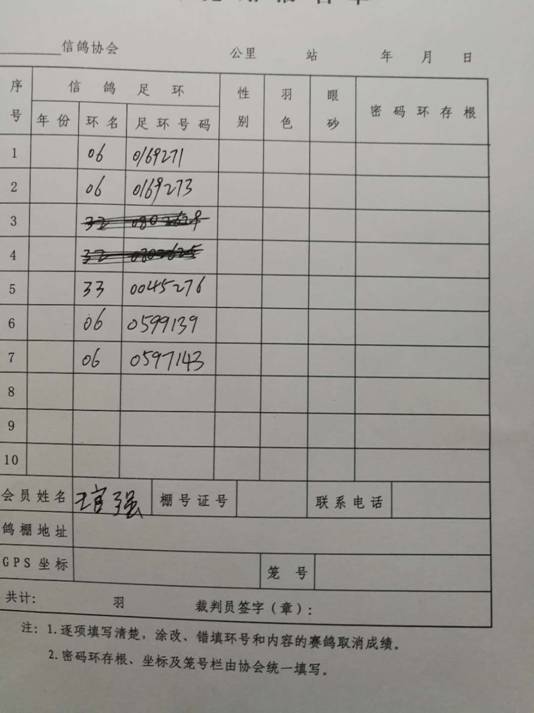 信鸽协会 公里 站 年 月 日
序号 信鸽足环 性别 羽色 眼砂 密码环存根
年份 环名 足环号码
1 06 0169271
2 06 0169273
3
4
5 33 0045276
6 06 0599139
7 06 0597143
8
9
10
会员姓名 强 棚号证号 联系电话
鸽棚地址
GPS坐标 笼号
共计: 羽 裁判员签字(章):
注: 1.逐项填写清楚,涂改、错填环号和内容的赛鸽取消成绩。
2.密码环存根、坐标及笼号栏由协会统一填写。